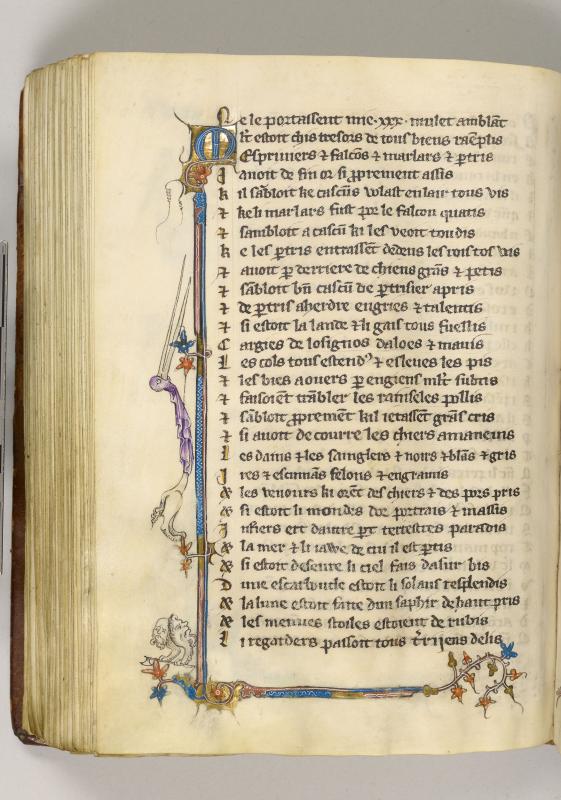 Ne le portassent mie .xxx. mulet amblāt
Mlt estoit chis tresors de tous biens raēplis
Espriuiers ⁊ falcōs ⁊ marlars ⁊ ꝑtris
I auoit de fin or si ꝓprement assis
k il sābloit ke cascūs volast en lair tous vis
⁊ ke li marlars fust por le falcon quatis
⁊ sambloit a cascū ki les veoit toudis
k e les ꝑtris entrassēt dedens les
⁊ auoit ꝑ derriere de chiens grās ⁊ petis
⁊ sābloit bn̄ cascū de ꝑtrisier apris
⁊ de ꝑtris aherdre engries ⁊ talentis
⁊ si estoit la lande ⁊ li gaus tous fuellis
C argies de losignos daloes ⁊ mauis
L es cols tous estendꝰ ⁊ esleues les pis
⁊ les bies aouers ꝑ engiens mlt subtis
⁊ faisoiēt trābler les rainseles pollis
⁊ sābloit ꝓpremēt kil ietassēt grās cris
⁊ si auoit de courre les chiers amaneuis
L es dains ⁊ les sainglers ⁊ noirs ⁊ blās ⁊ gris
I res ⁊ escumās felons ⁊ engramis
⁊ les venours ki orēt des chiers ⁊ des pors pris
⁊ si estoit li mondes dor portrais ⁊ massis
I nfiers ert dautre ꝑt terrestres paradis
⁊ la mer ⁊ li iawe de cui il est ꝑtis
⁊ si estoit deseure li ciel fais dasur bis
D une escarbucle estoit li solaus resplendis
⁊ la lune estoit faite dun saphir de haut pris
⁊ les menues stoiles estoient de rubis
L i regarders passoit tous delis